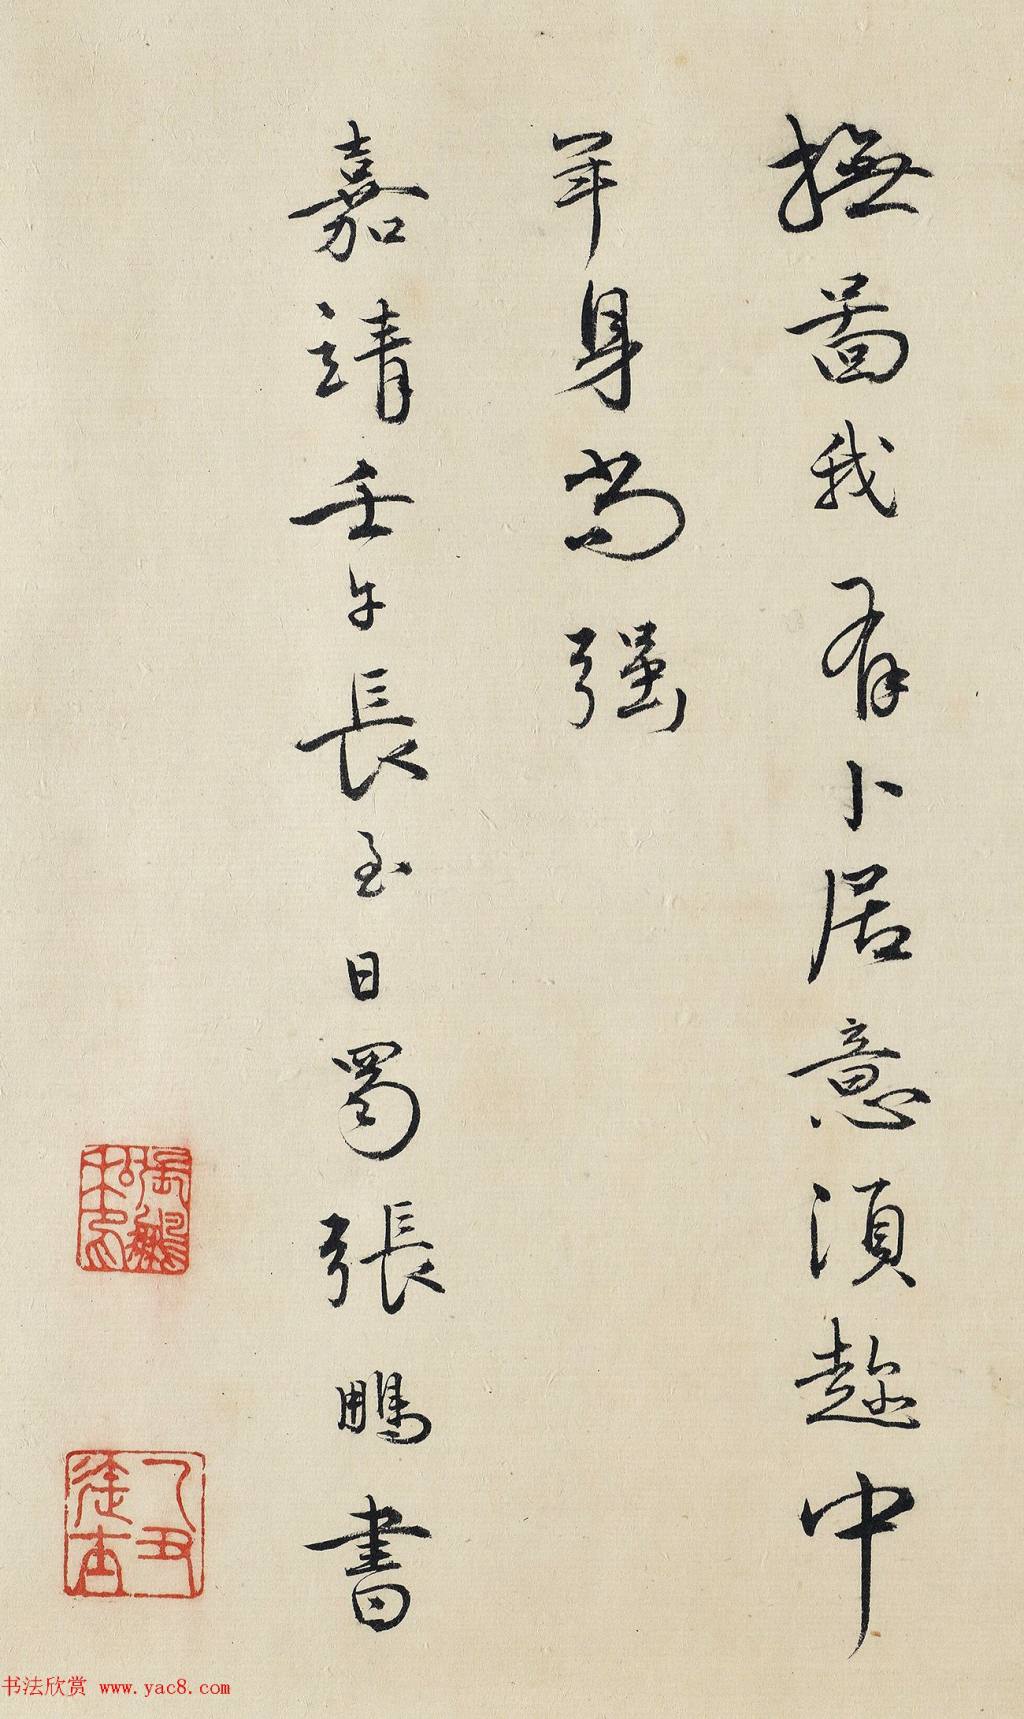 撫啚我有卜居意須趂中
年身尚强
嘉靖壬午長至日蜀張鵬書
书法欣赏 www.yac8.com